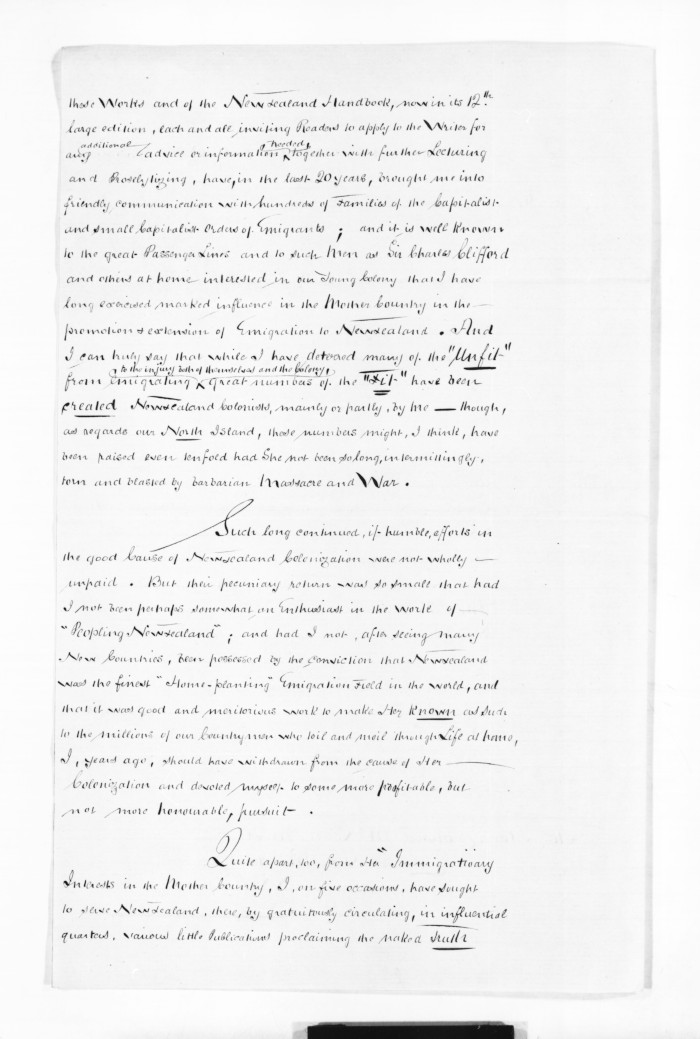 these Works and of the New Zealand Handbook, now in its 12th.
large edition, each and all inviting Readers to apply to the Writer for
any additional advice or information needed, together with further Lecturing
and Proselytizing, have, in the last 20 years, brought me into
friendly communication with hundreds of Families of the Capitalist
and small Capitalist orders of Emigrants; and it is well known
to the great Passenger Lines and to such Men as Sir Charles Clifford
and others at home interested in our Young Colony that I have
long exercised marked influence in the Mother Country in the
promotion & extension of Emigration to New Zealand. And
I can truly say that while I have deterred many of the "Unfit"
from emigrating to the injury both of themselves and the Colony, great numbers of the "Fit" have been
created New Zealand Colonists, mainly or partly, by me — though,
as regards our North Island, these numbers might, I think, have
been raised even tenfold had She not been so long, intermittingly,
torn and blasted by barbarian Massacre and War.
Such long continued, if humble, efforts in
the good Cause of New Zealand Colonization were not wholly
unpaid. But their pecuniary return was so small that had
I not been perhaps somewhat an Enthusiast in the work of
"Peopling New Zealand"; and had I not, after seeing many
New Countries, been possessed by the conviction that New Zealand
was the finest "Home-planting" Emigration Field in the world, and
that it was good and meritorious work to make Her known as such
to the millions of our Countrymen who toil and moil through Life at home,
I, years ago, should have withdrawn from the cause of Her
Colonization and devoted myself to some more profitable, but
not more honourable, pursuit.
Quite apart, too, from Her "Immigrationary
Interests in the Mother Country, I, on five occasions, have sought
to serve New Zealand, there, by gratuitously circulating, in influential
quarters, various little Publications proclaiming the naked truth